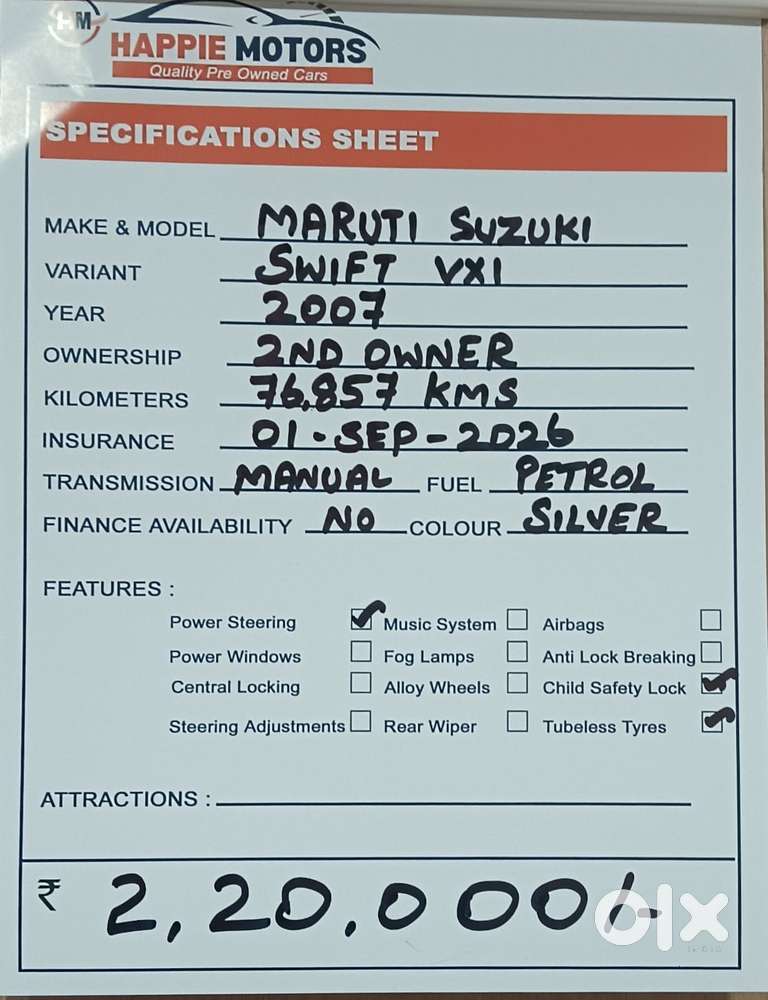 HM
HAPPIE MOTORS
Quality Pre Owned Cars
SPECIFICATIONS SHEET
MAKE & MODEL MARUTI SUZUKI
VARIANT SWIFT VXI
YEAR 2007
OWNERSHIP 2ND OWNER
KILOMETERS 76,857 KMS
INSURANCE 01-SEP-2026
TRANSMISSION MANUAL FUEL PETROL
FINANCE AVAILABILITY NO COLOUR SILVER
FEATURES :
Power Steering Music System Airbags
Power Windows Fog Lamps Anti Lock Breaking
Central Locking Alloy Wheels Child Safety Lock
Steering Adjustments Rear Wiper Tubeless Tyres
ATTRACTIONS :
₹ 2,20,000/-
olx